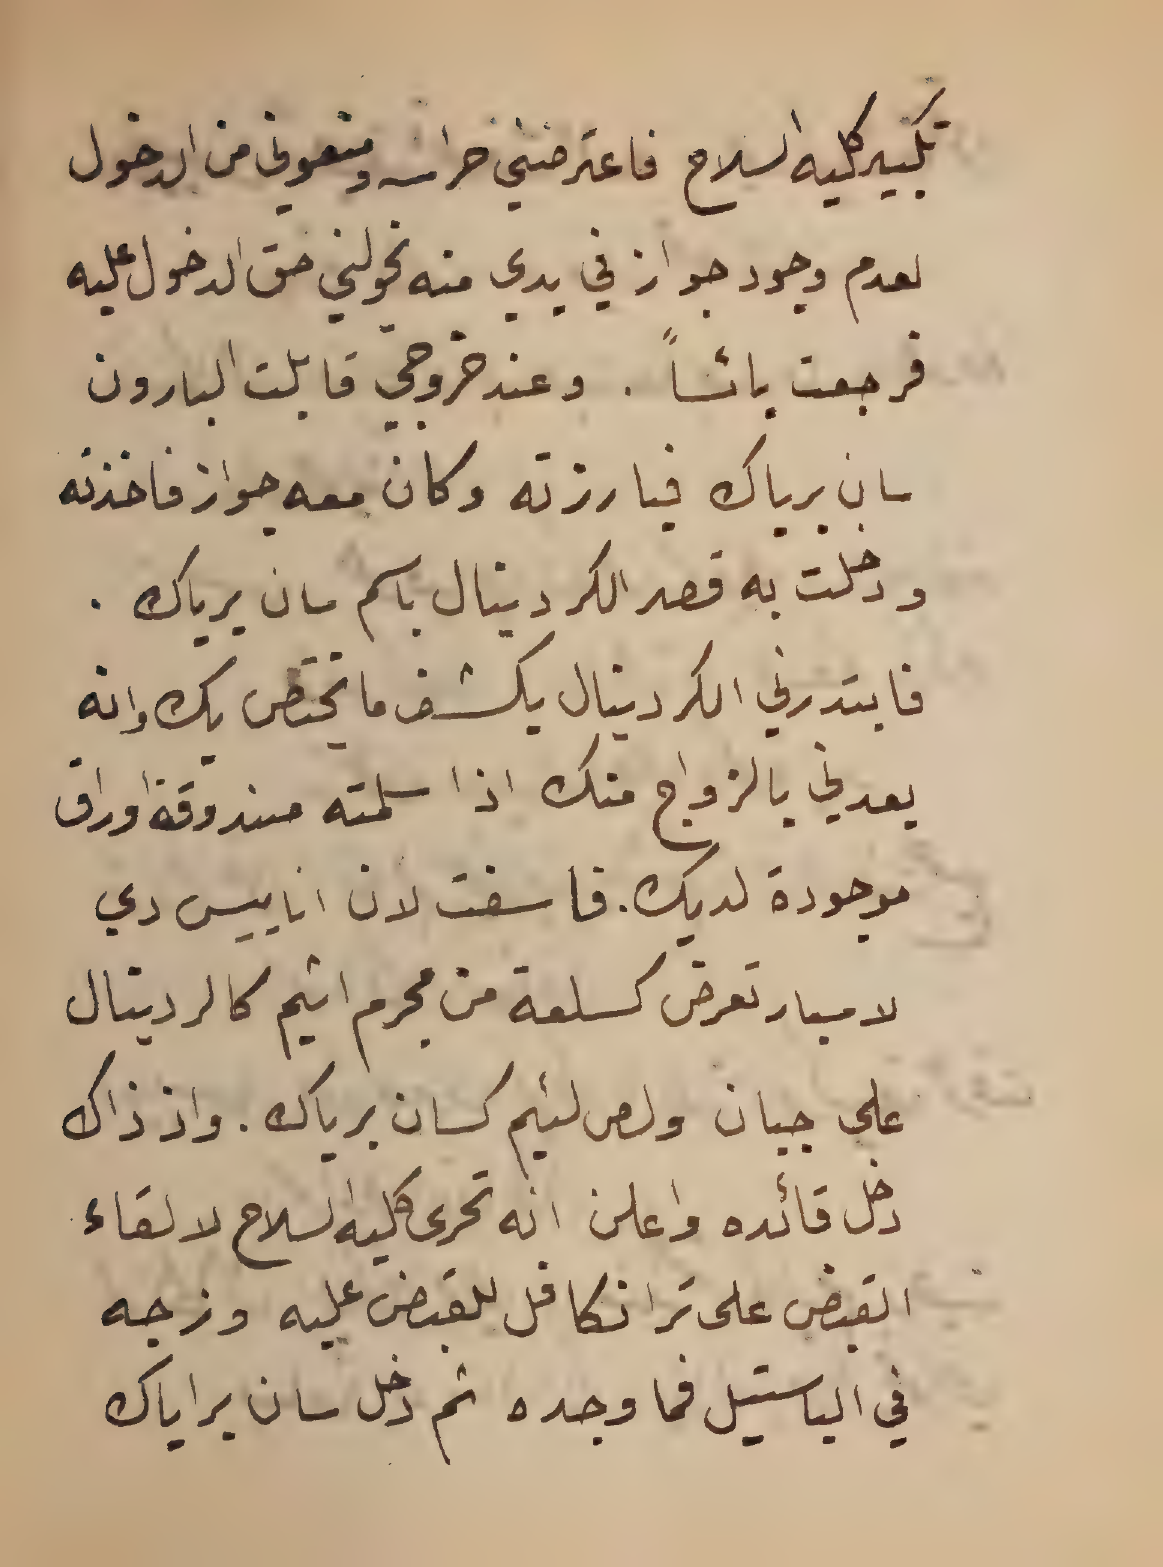 بكبير كلية السلاح فاعترضني حراسه ومنعوني من الدخول
لعدم وجود جواز في يدي منه يخولني حق الدخول عليه
فرجعت يائساً . وعند خروجي قابلت البارون
سان برياك فبارزته وكان معه جواز فاخذته
ودخلت به قصر الكردينال باسم سان برياك .
فابتدرني الكردينال يكشف ما يختص بك وانه
يعدني بالزواج منك اذا سلمته صندوقة اوراق
موجودة لديك . فاسفت لان انابيس دي
لامبار تعرض كسلعة من مجرم اثيم كالردينال
على جبان ولص لئيم كسان برياك . واذ ذاك
دخل قائده واعلن انه تحرى كلية السلاح لالقاء
القبض على ترانكافل للقبض عليه وزجه
في الباستيل فما وجده ثم دخل سان براياك